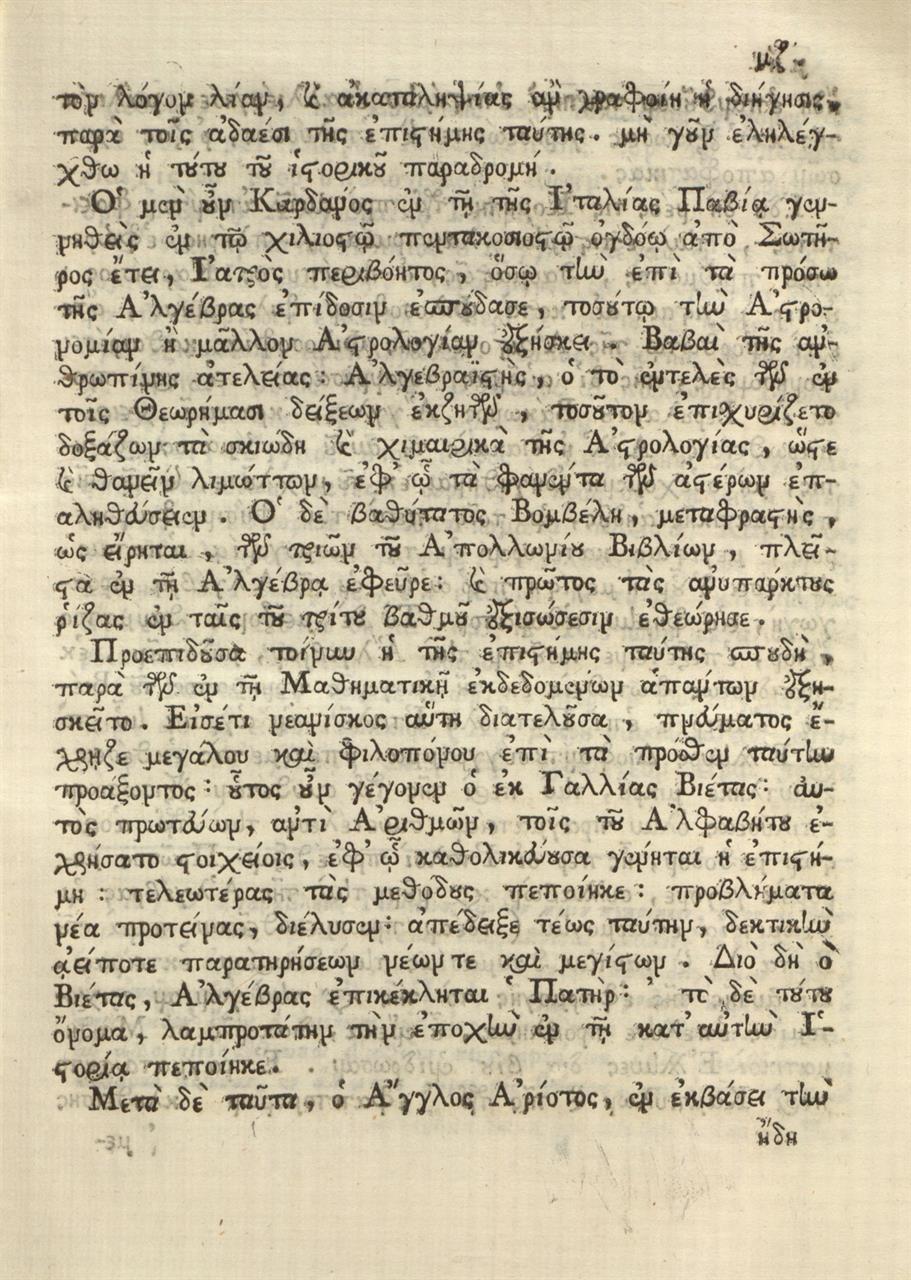 μζ
τὸν λόγον λίαν, ϗ ἀκαταληψίας ἂν γραφοίη ἡ διήγησις,
παρὰ τοῖς ἀδαέσι τῆς ἐπιςήμης ταύτης. μὴ γοῦν ἐληλέγ-
χθω ἡ τύτυ τῦ ἱςορικῦ παραδρομή.
Ὁ μὲν ὖν Καρδάνος ἐν τῇ τῆς Ἰταλίας Παβίᾳ γεν-
νηθεὶς ἐν τῷ χιλιοςῷ πεντακοσιοςῷ ὀγδόῳ ἀπὸ Σωτῆ-
ρος ἔτει, Ἰατρὸς περιβόητος, ὅσῳ τὴν ἐπὶ τὰ πρόσω
τῆς Ἀλγέβρας ἐπίδοσιν ἐσπύδασε, τοσύτῳ τὴν Ἀςρο-
νομίαν ἢ μᾶλλον Ἀςρολογίαν ἐξήσκει. Βαβαὶ τῆς ἀν-
θρωπίνης ἀτελείας: Ἀλγεβραϊςὴς, ὁ τὸ ἐντελὲς τῶν ἐν
τοῖς Θεωρήμασι δείξεων ἐκζητῶν, τοσῦτον ἐπιχυρίζετο
δοξάζων τὰ σκιώδη ϗ χιμαιρικὰ τῆς Ἀςρολογίας, ὥςε
ϗ θανεῖν λιμώττων, ἐφ' ᾧ τὰ φανέντα τῶν ἀςέρων ἐπ-
αληθεύσειεν. Ὁ δὲ βαθύτατος Βομβέλη, μεταφραςὴς,
ὡς εἴρηται, τῶν τριῶν τῦ Ἀπολλωνίυ Βιβλίων, πλεῖ-
ςα ἐν τῇ Ἀλγέβρᾳ ἐφεῦρε: ϗ πρῶτος τὰς ἀνυπάρκτυς
ῥίζας ἐν ταῖς τῦ τρίτυ βαθμῦ ἐξισώσεσιν ἐθεώρησε.
Προεπιδῦσα τοίνυν ἡ τῆς ἐπιςήμης ταύτης σπυδὴ,
παρὰ τῶν ἐν τῇ Μαθηματικῇ ἐκδεδομένων ἁπάντων ἐξη-
σκεῖτο. Εἰσέτι νεανίσκος αὕτη διατελῦσα, πνεύματος ἔ-
χρῃζε μεγάλου καὶ φιλοπόνου ἐπὶ τὰ πρόσθεν ταύτην
προάξοντος: ὗτος ὖν γέγονεν ὁ ἐκ Γαλλίας Βιέτας: αὐ-
τὸς πρωτεύων, ἀντὶ Ἀριθμῶν, τοῖς τῦ Ἀλφαβήτυ ἐ-
χρήσατο ςοιχείοις, ἐφ' ᾧ καθολικεύουσα γένηται ἡ ἐπιςή-
μη: τελεωτέρας τὰς μεθόδυς πεποίηκε: προβλήματα
νέα προτείνας, διέλυσεν: ἀπέδειξε τέως ταύτην, δεκτικὴν
ἀείποτε παρατηρήσεων νέων τε καὶ μεγίςων. Διὸ δὴ ὁ
Βιέτας, Ἀλγέβρας ἐπικέκληται ὁ Πατὴρ: τὸ δὲ τύτυ
ὄνομα, λαμπροτάτην τὴν ἐποχὴν ἐν τῇ κατ' αὐτὴν Ἱ-
ςορίᾳ πεποίηκε.
Μετὰ δὲ ταῦτα, ὁ Ἄγγλος Ἀρίοτος, ἐν ἐκβάσει τὴν
ἤδη